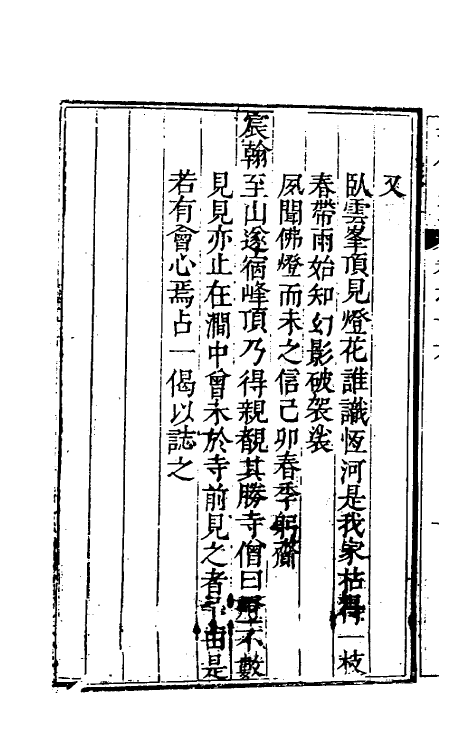 又
臥雲峯頂見燈花誰識恆河是我家拈得一枝
春帶雨始知幻影破袈裟
夙聞佛燈而未之信己卯春季躬齎
宸翰至山遂宿峰頂乃得親覩其勝寺僧曰燈不數
見見亦止在澗中曾未於寺前見之者予由是
若有會心焉占一偈以誌之